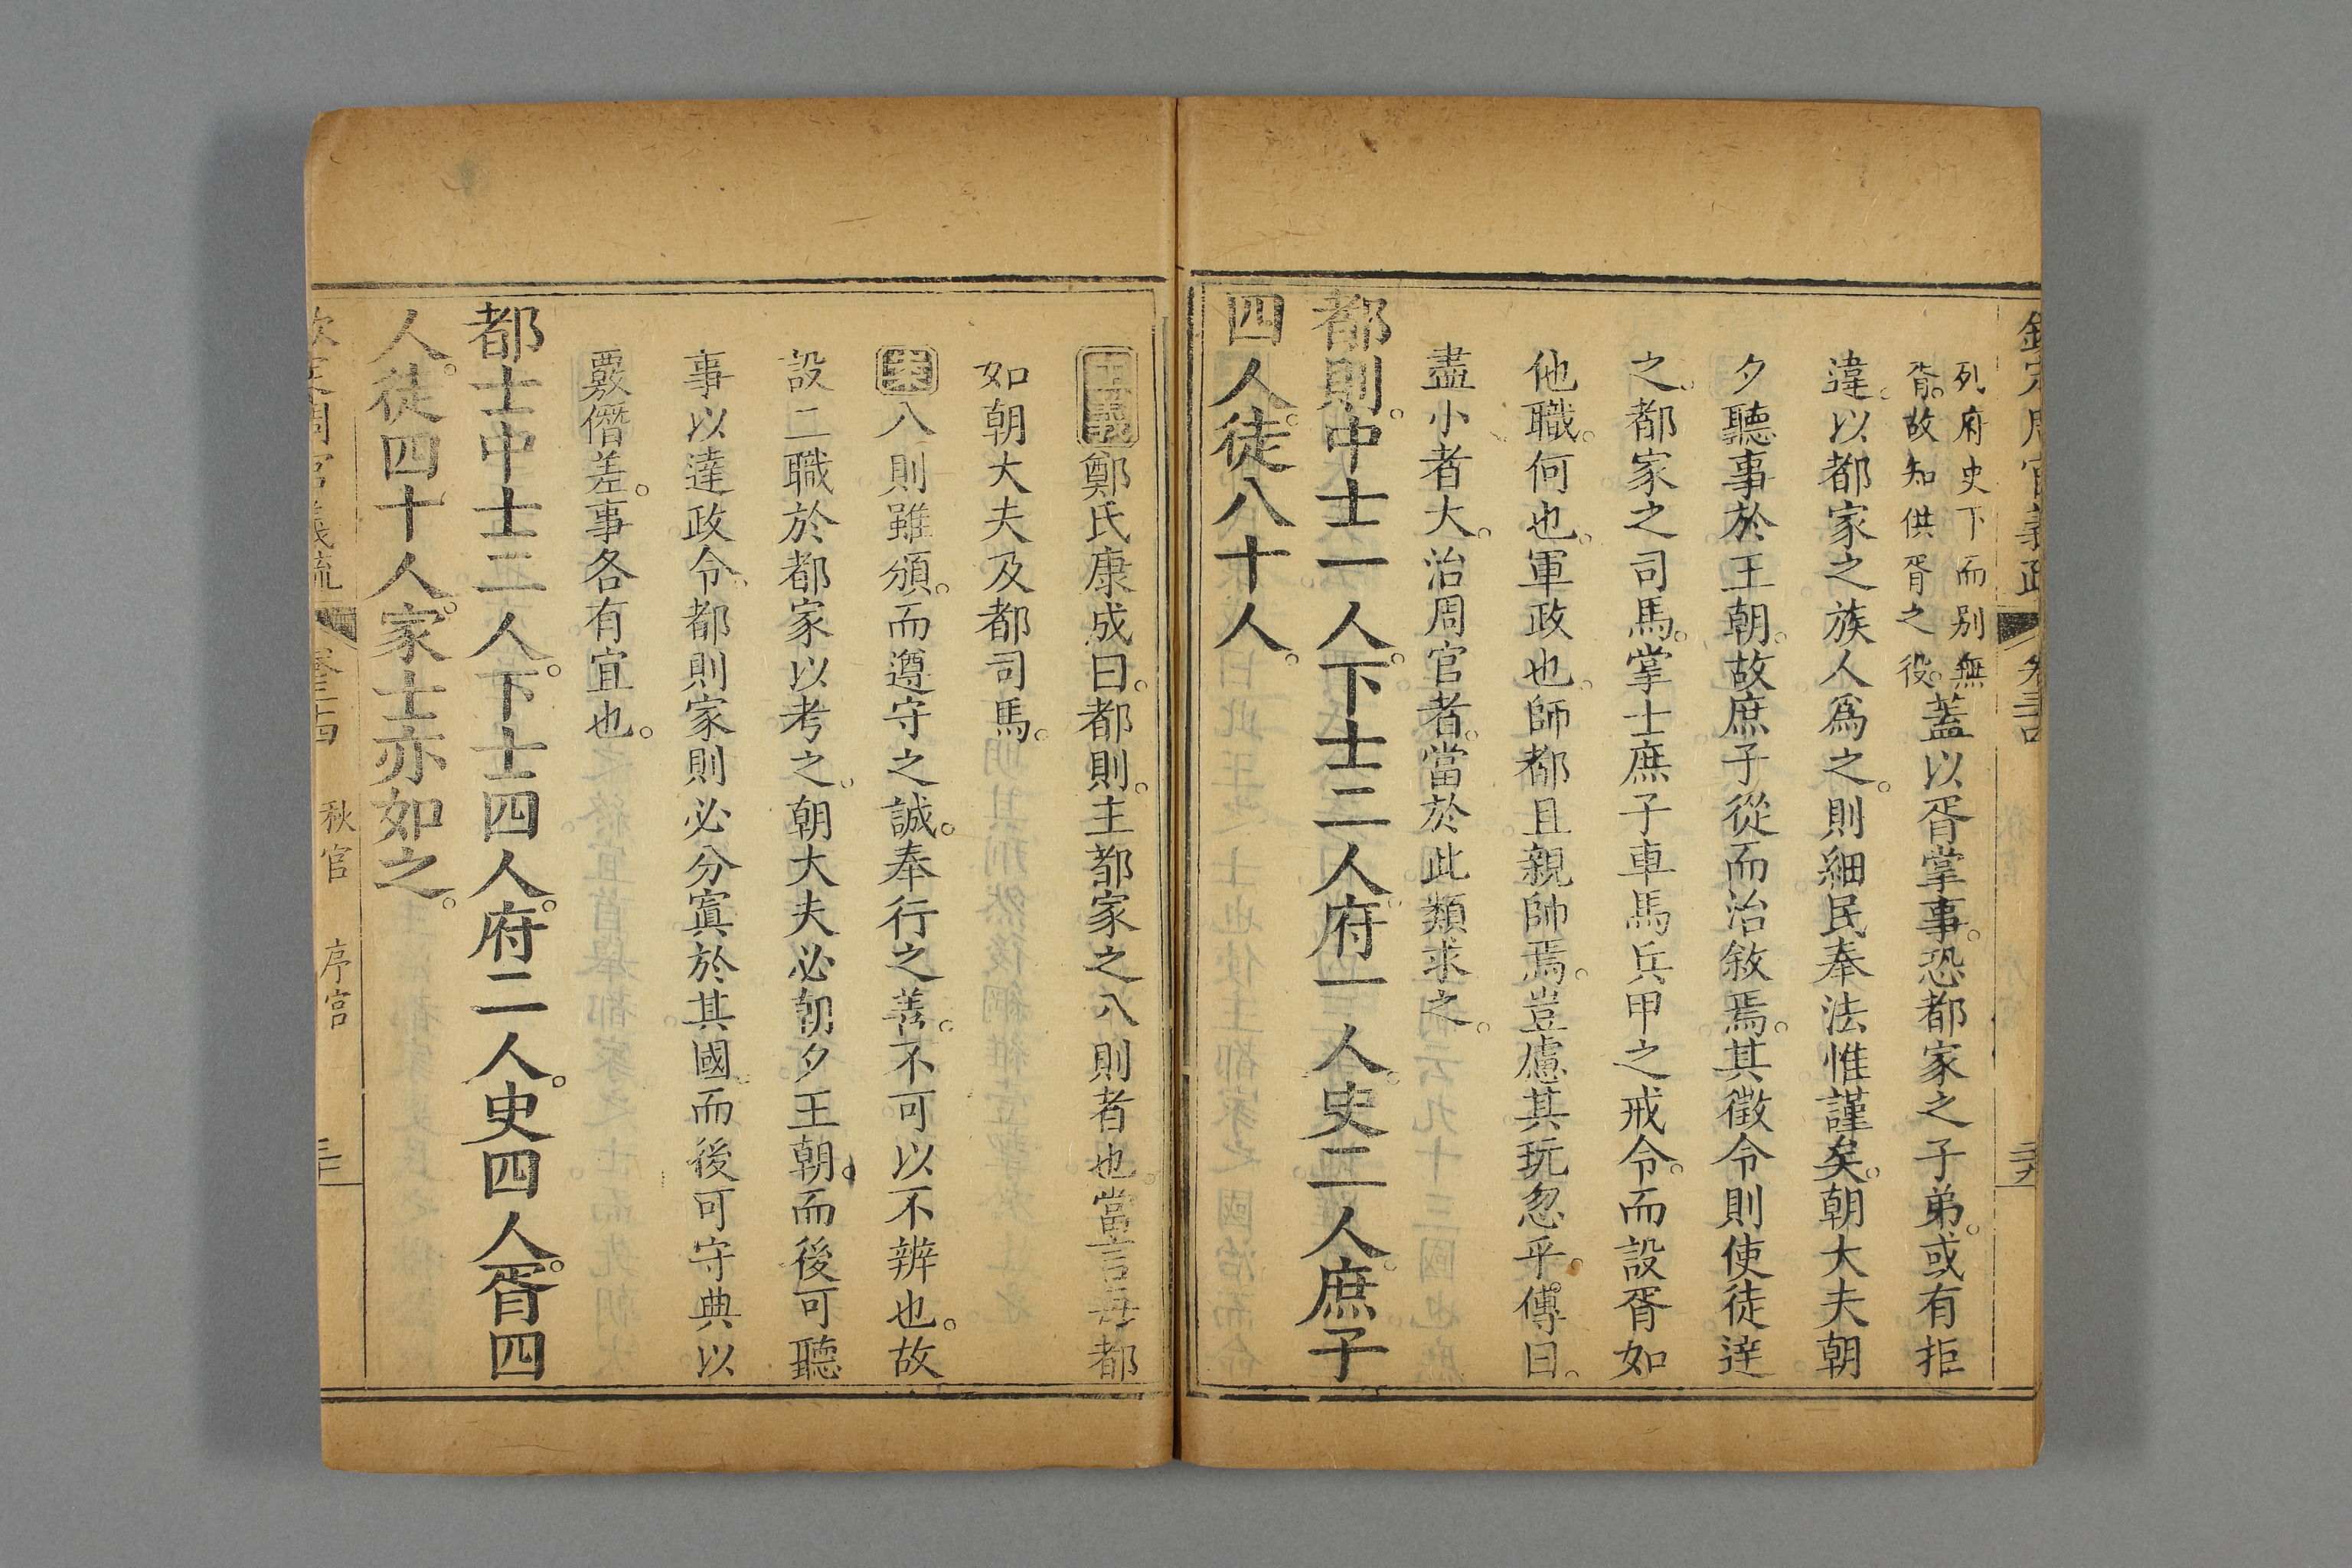 欽定周官義疏 卷三十四 三十九
列府史下而别無
胥故知供胥之役
蓋以胥掌事。恐都家之子弟。或有拒
違。以都家之族人爲之。則細民奉法惟謹矣。朝大夫朝
夕聽事於王朝。故庶子從而治敘焉。其徵令則使徒逹
之。都家之司馬。掌士庶子車馬兵甲之戒令。而設胥如
他職。何也。軍政也。師都且親帥焉。豈慮其玩忽乎。傳曰。
盡小者大。治周官者。當於此類求之。
都則。中士一人。下士二人。府一人。史二人。庶子
四人。徒八十人。
正義鄭氏康成曰。都則。主都家之八則者也。當言每都
如朝大夫及都司馬。
案八則雖頒。而遵守之誠。奉行之善。不可以不辨也。故
設二職於都家以考之。朝大夫必朝夕王朝。而後可聽
事以達政令。都則家則必分寘於其國。而後可守典以
覈僭差。事各有宜也。
都士中士二人。下士四人。府二人。史四人。胥四
人。徒四十人。家士亦如之。
欽定周官義疏 卷三十四 秋官 序官